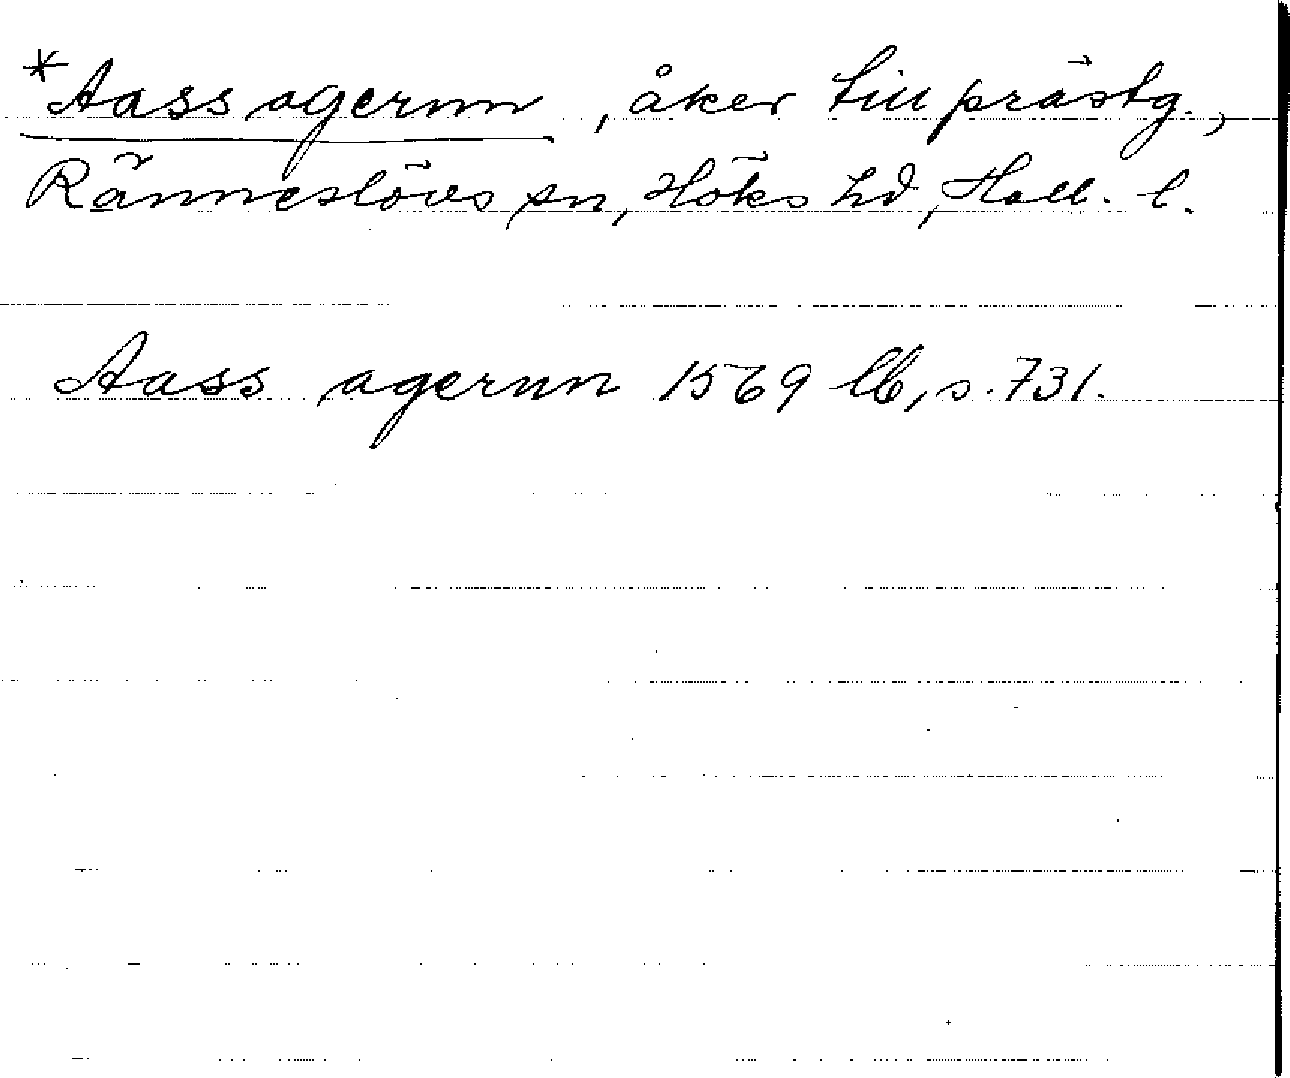 *Aass agernn, åker till prästg.,
Ränneslövs sn, Höks hd, Hall. l.
Aass agernn 1569 lb, s. 731.